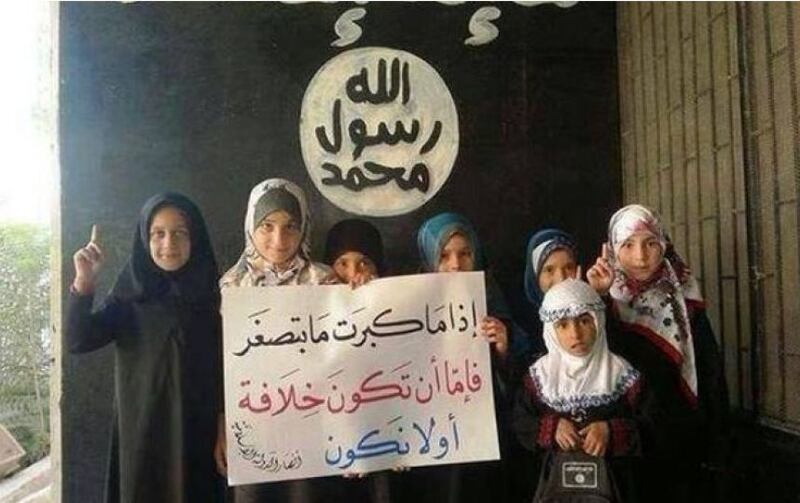 الله
رسول
محمد
إذا ما كبرت ما بتصغر
فإمّا أن تكون خلافة
أو لا نكون
أنصار الدولة